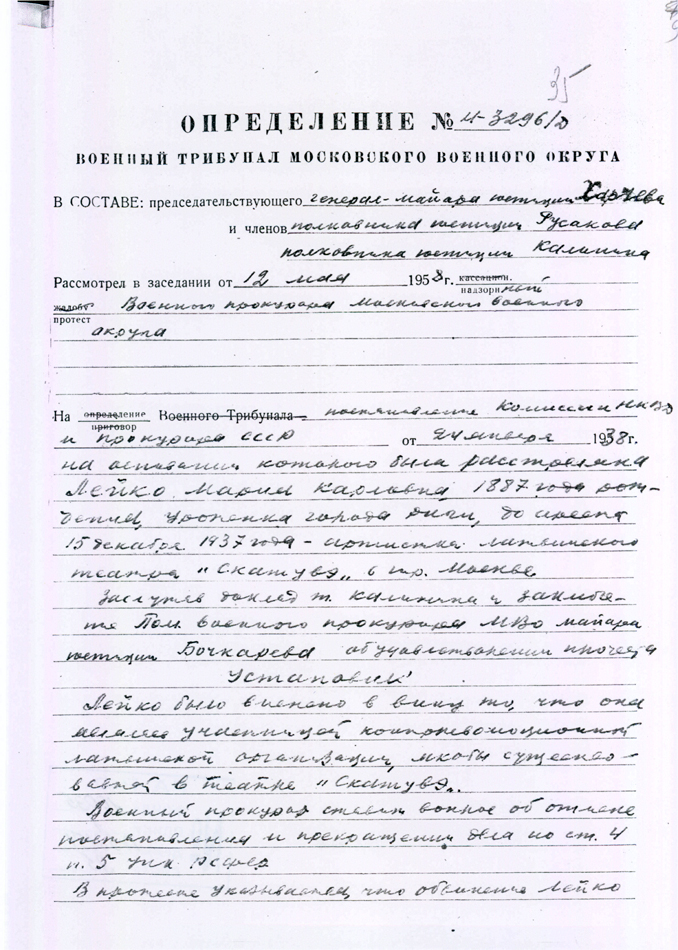 35
ОПРЕДЕЛЕНИЕ № Н-3296/0
ВОЕННЫЙ ТРИБУНАЛ МОСКОВСКОГО ВОЕННОГО ОКРУГА
В СОСТАВЕ: председательствующего генерал-майора юстиции Харчева
и членов полковника юстиции Русакова
полковника юстиции Калинина
Рассмотрел в заседании от 12 мая 1958 г. кассацион.
надзорный
жалобу Военного прокурора Московского военного
протест
округа
На определение Военного Трибунала постановление Комиссии НКВД
приговор
и прокурора СССР от января 1938 г.
на основании которого была расстреляна
Лейко Мария Карловна, 1887 года рож-
дения, уроженка города Риги, до ареста
15 декабря 1937 года – артистка латышского
театра "Скатувэ" в гор. Москве.
Заслушав доклад т. Калинина и заключе-
ние Пом. военного прокурора МВО майора
юстиции Бочкарева об удовлетворении протеста
Установил:
Лейко было вменено в вину то, что она
являлась участницей контрреволюционной
латышской организации, якобы существо-
вавшей в театре "Скатувэ".
Военный прокурор ставит вопрос об отмене
постановления и прекращении дела по ст. 4
п. 5 УПК РСФСР
В протесте указывается, что обвинение Лейко